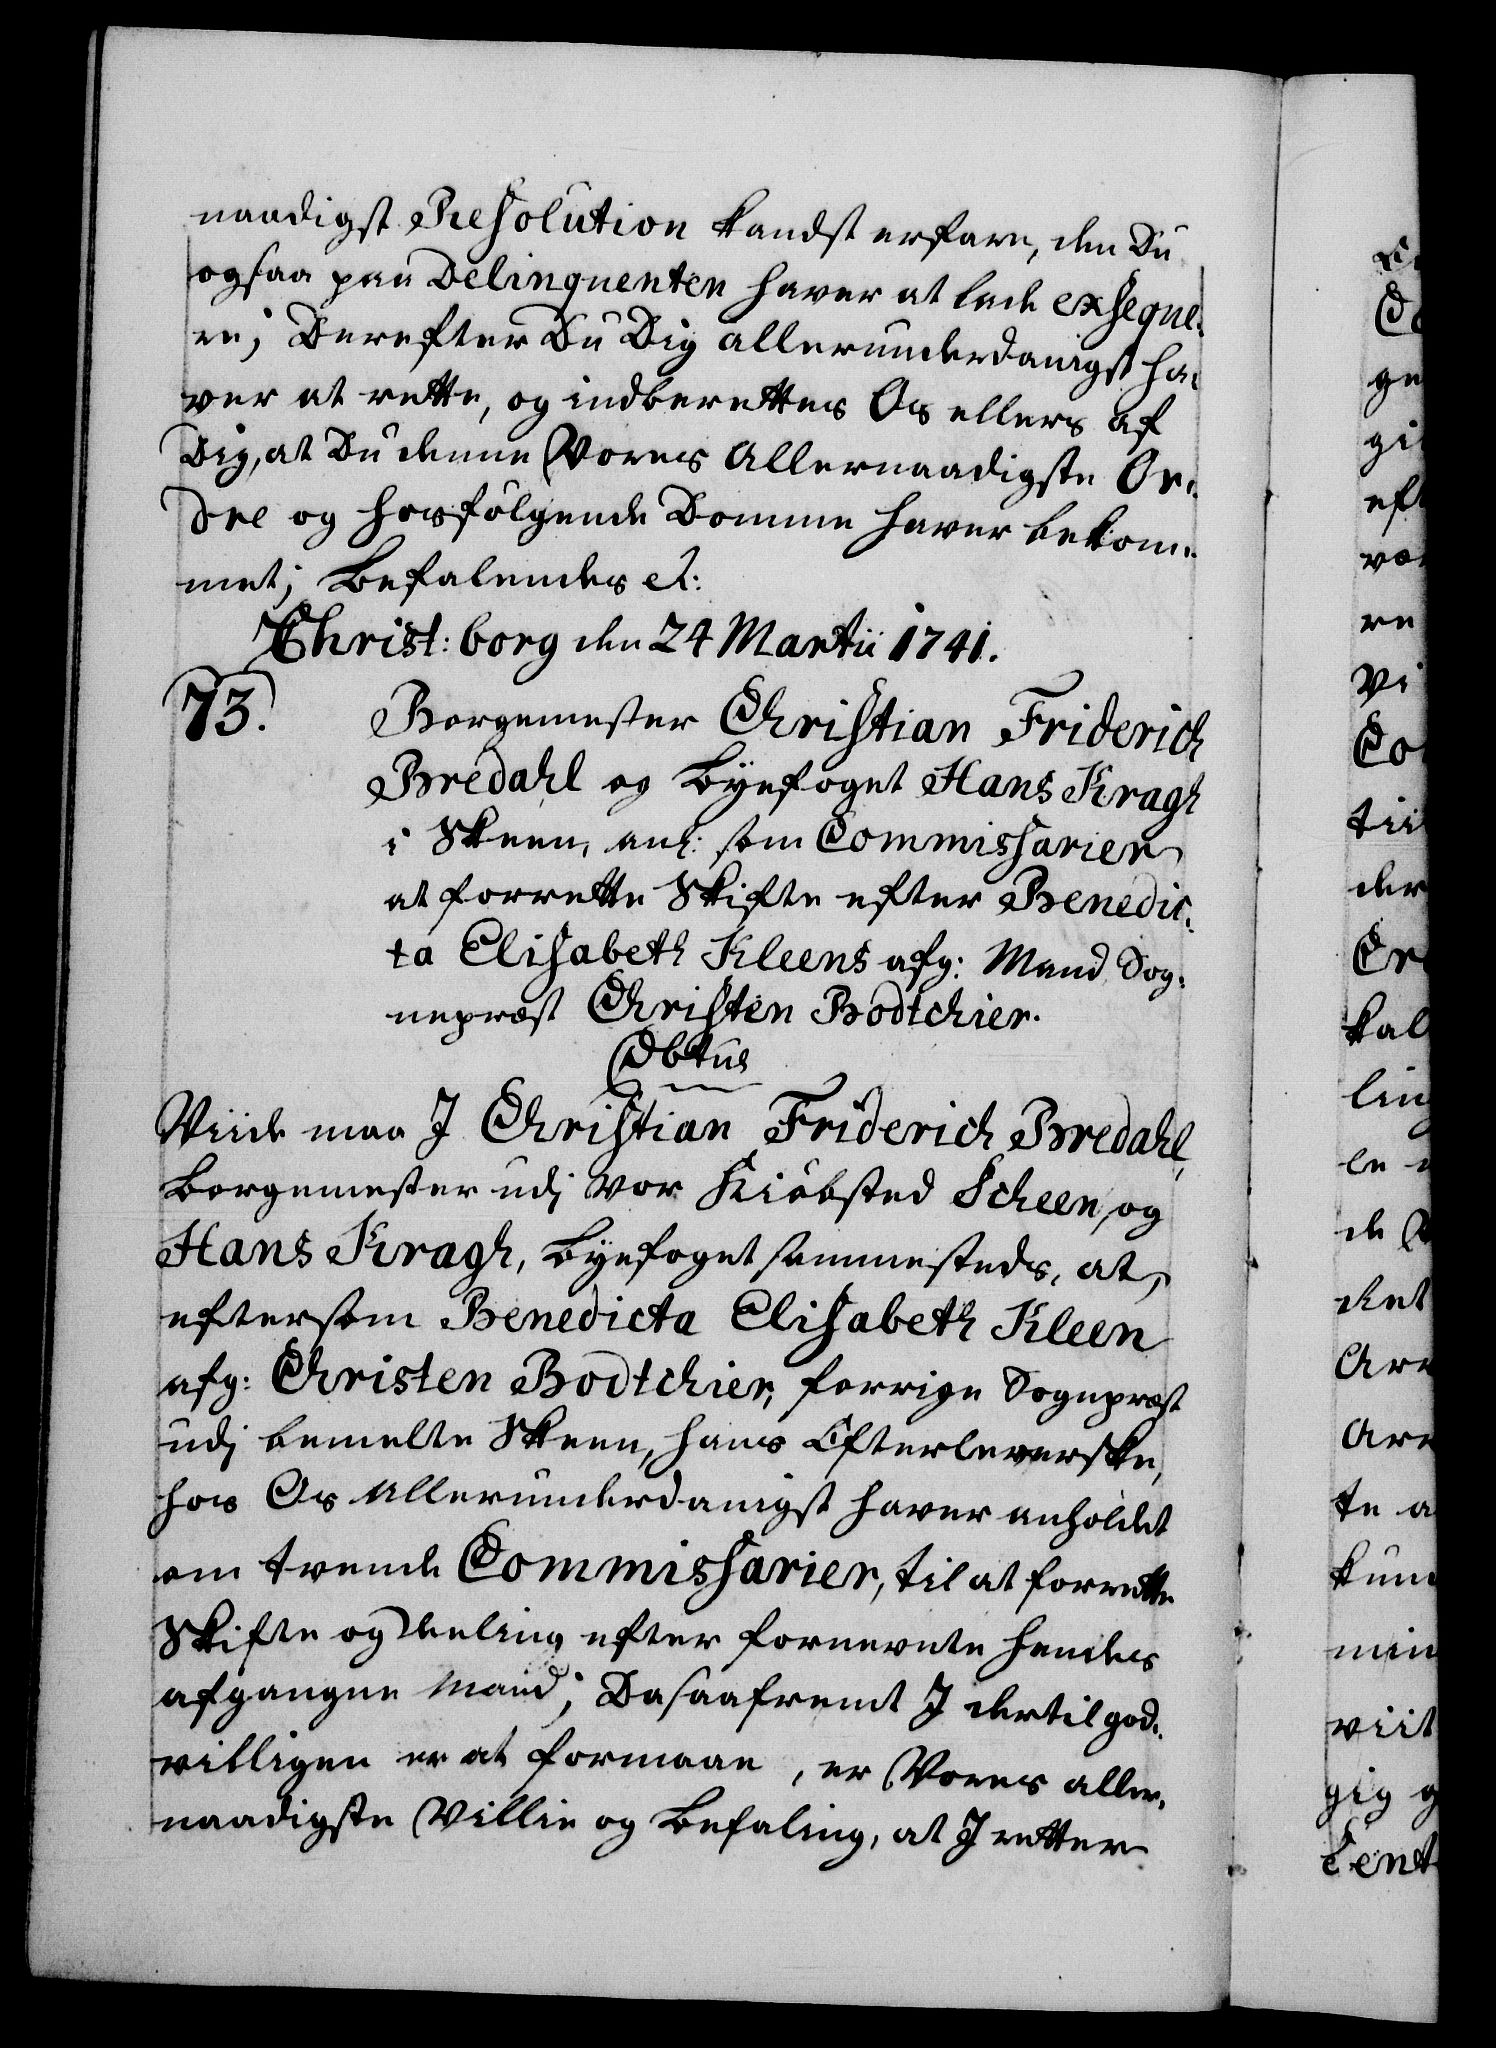 naadigst Resolution kandst erfare, den Du
ogsaa paa Delinquenten haver at lade exseqve¬
re; Derefter Du Dig allerunderdanigst ha¬
ver at rette, og indberettes Os ellers af
Dig, at Du denne Vores Allernaadigste Or¬
dre og hosfølgende Domme haver bekom¬
met; Befalendes et:
Christ: borg den 24 Martii 1741.
73.
Borgemester Christian Friderich
Bredahl og Byefoget Hans Kragh
i Skeen, anl: som Commissarier
at forrette Skifte efter Benedic¬
ta Elisabeth Kleens afg: Mand Sog¬
nepræst Christen Bodtchier.
Cbtus
Viide maa I Christian Friderich Bredahl,
Borgemester udj vor Kiøbsted Scheen, og
Hans Kragh, Byefoget sammesteds, at,
eftersom Benedicta Elisabeth Kleen
afg: Christen Bodtchier, forrige Sognepræst
udj bemelte Skeen, hans Efterleverske,
hos Os Allerunderdanigst haver anholdet
om tvende Commissarier, til at forrette
Skifte og Deeling efter fornevnte hendes
afgangne Mand; Dasaafremt I dertil god¬
villigen er at formaae, er Vores aller¬
naadigste Villie og Befaling, at I retter
Co
ge
gi
eft
ve
re
Vi
Co
tii
der
Er
kal
ling
le
de
det
Arr
Arr
te a
kun
min
viit
gig g
Cent